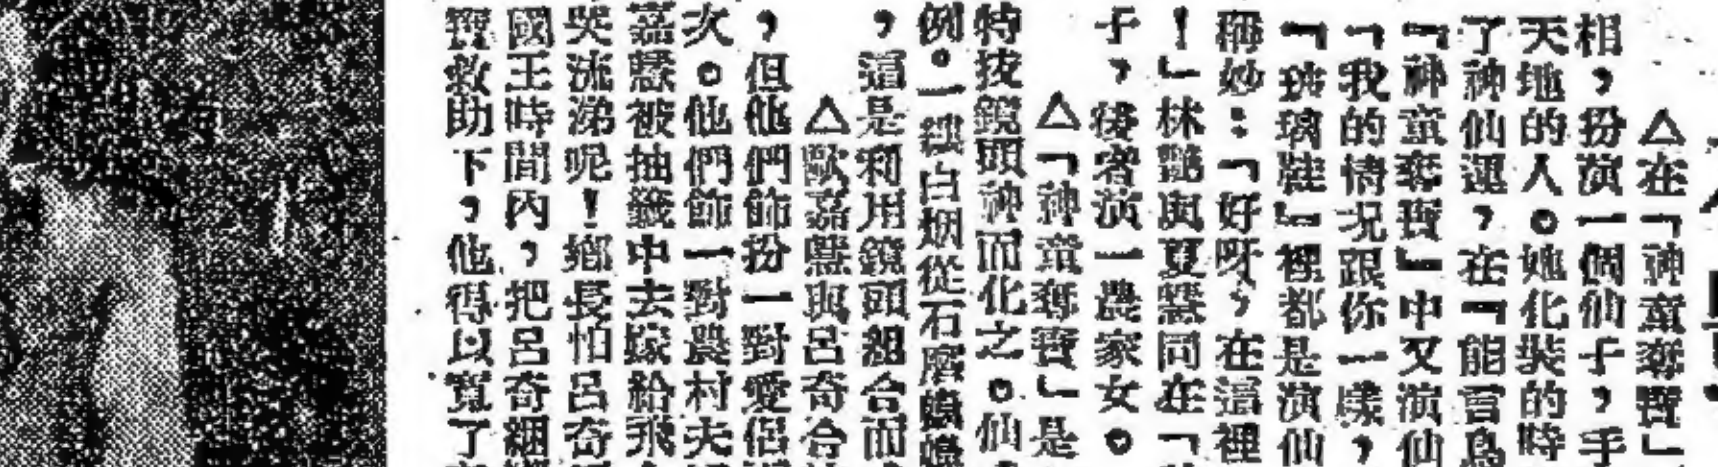 △在「神童奪寶」
相，扮演一個仙子，手
天地的人。她化裝的時
了神仙運，在「能言鳥
「神童奪寶」中又演仙
「我的情况跟你一樣，
「玻璃鞋」裡都是演仙
稱妙：「好呀，在這裡
！」林艷與夏慧同在「
子，後者演一農家女。
△「神童奪寶」是
特技鏡頭神而化之。仙
例。一縷白烟從石磨
，這是利用鏡頭組合而
△歐嘉慧與呂奇合
，但他們飾扮一對愛侶
次。他們飾一對農村夫
嘉慧被抽籤中去嫁給飛
哭流涕呢！鄉長怕呂奇
國王時間內，把呂奇綑
寶救助下，他得以寬了